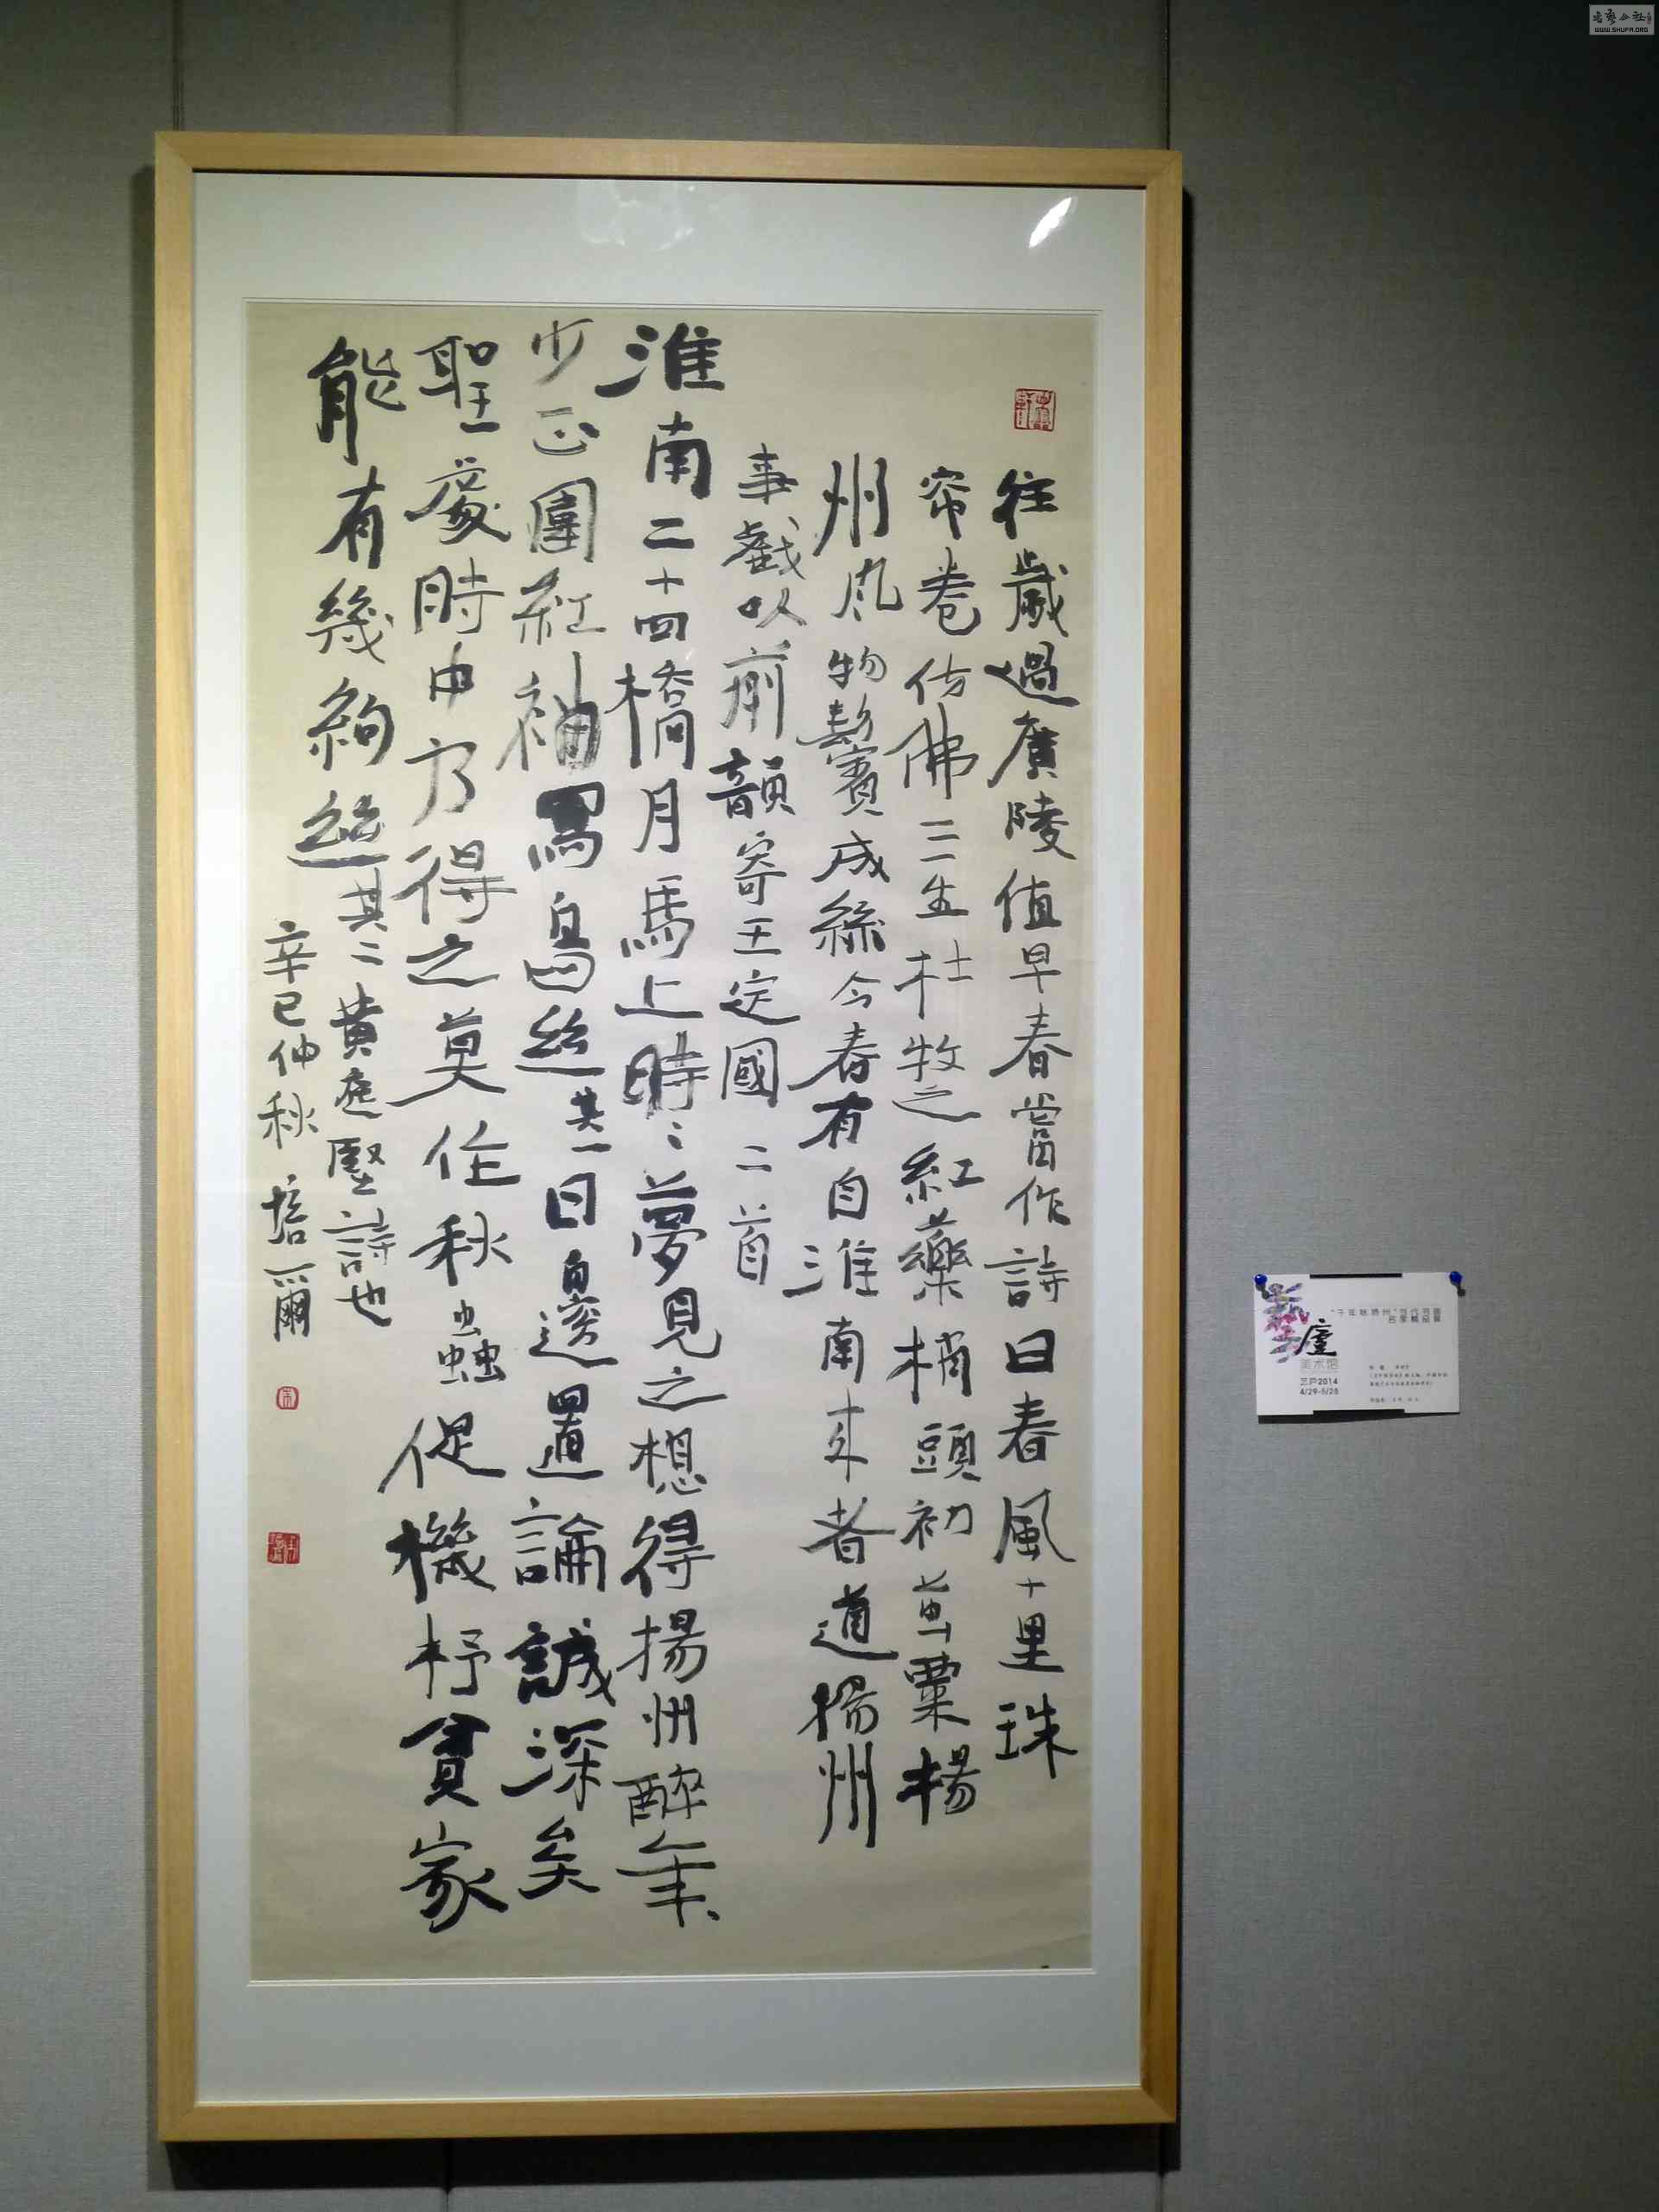 往歲過廣陵值早春嘗作詩曰春風十里珠
帘卷仿佛三生杜牧之紅藥梢頭初繭粟揚
州風物鬢成絲今春有自淮南來者道揚州
事戲以前韻寄王定國二首
淮南二十四橋月馬上時時夢見之想得揚州醉年
少正圍紅袖寫烏絲其一日邊置論誠深矣
聖處時中乃得之莫作秋蟲促機杼貧家
能有幾絇絲其二黃庭堅詩也
辛巳仲秋 培爾
廬
美术馆
三戸2014
4/29-5/28
WWW.SHUFA.ORG